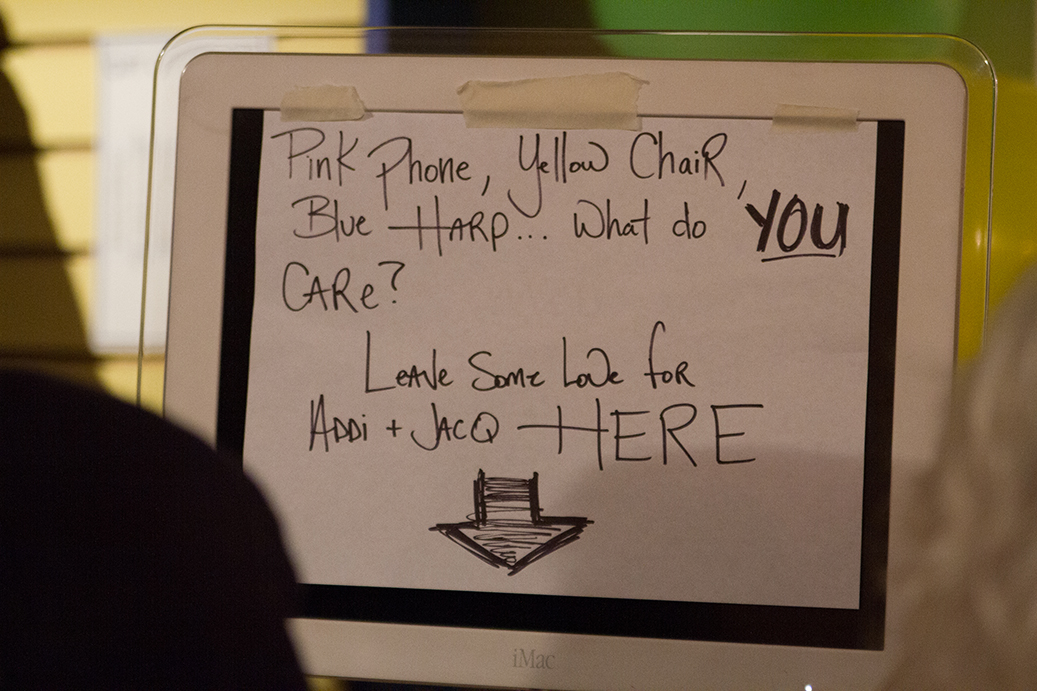 Pink Phone, Yellow Chair,
Blue Harp... What do YOU
Care?
Leave Some Love for
Addi + Jacq HERE
iMac